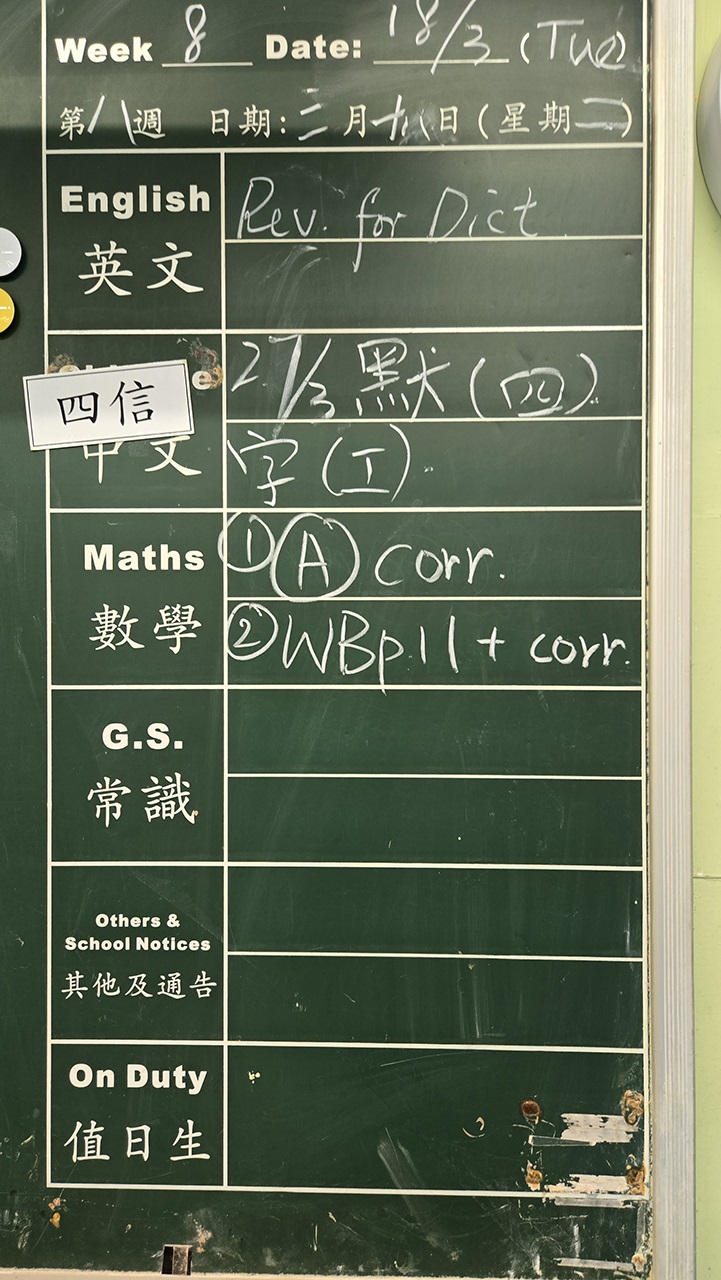 Week 8 Date: 18/3 (Tue)
第八週 日期:三月十八日(星期二)
English Rev. for Dict.
英文
27/3 默(四).
四信
中文 字(工).
Maths ①Ⓐ corr.
數學 ②WBp.11 + corr.
G.S.
常識
Others &
School Notices
其他及通告
On Duty
值日生